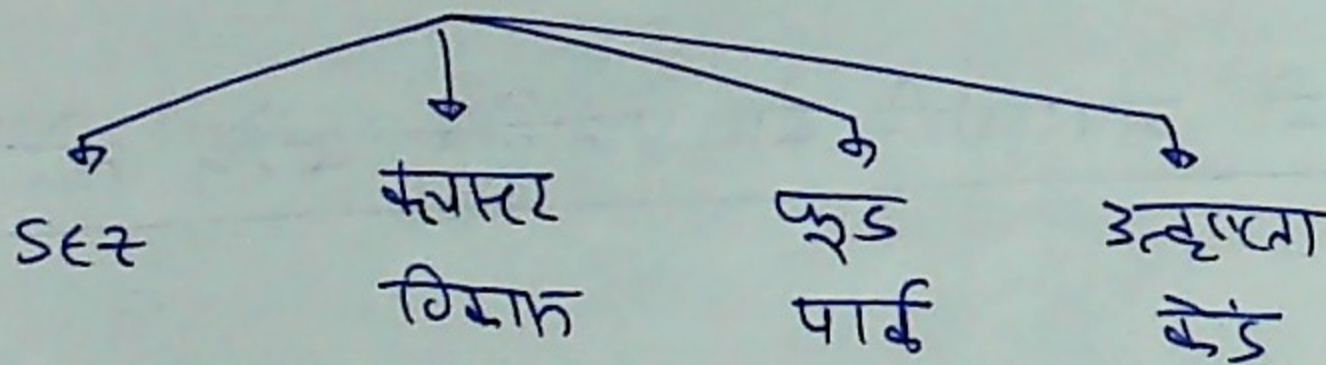 SEZ
क्लस्टर विकास
फूड पार्क
उत्कृष्टता केंद्र